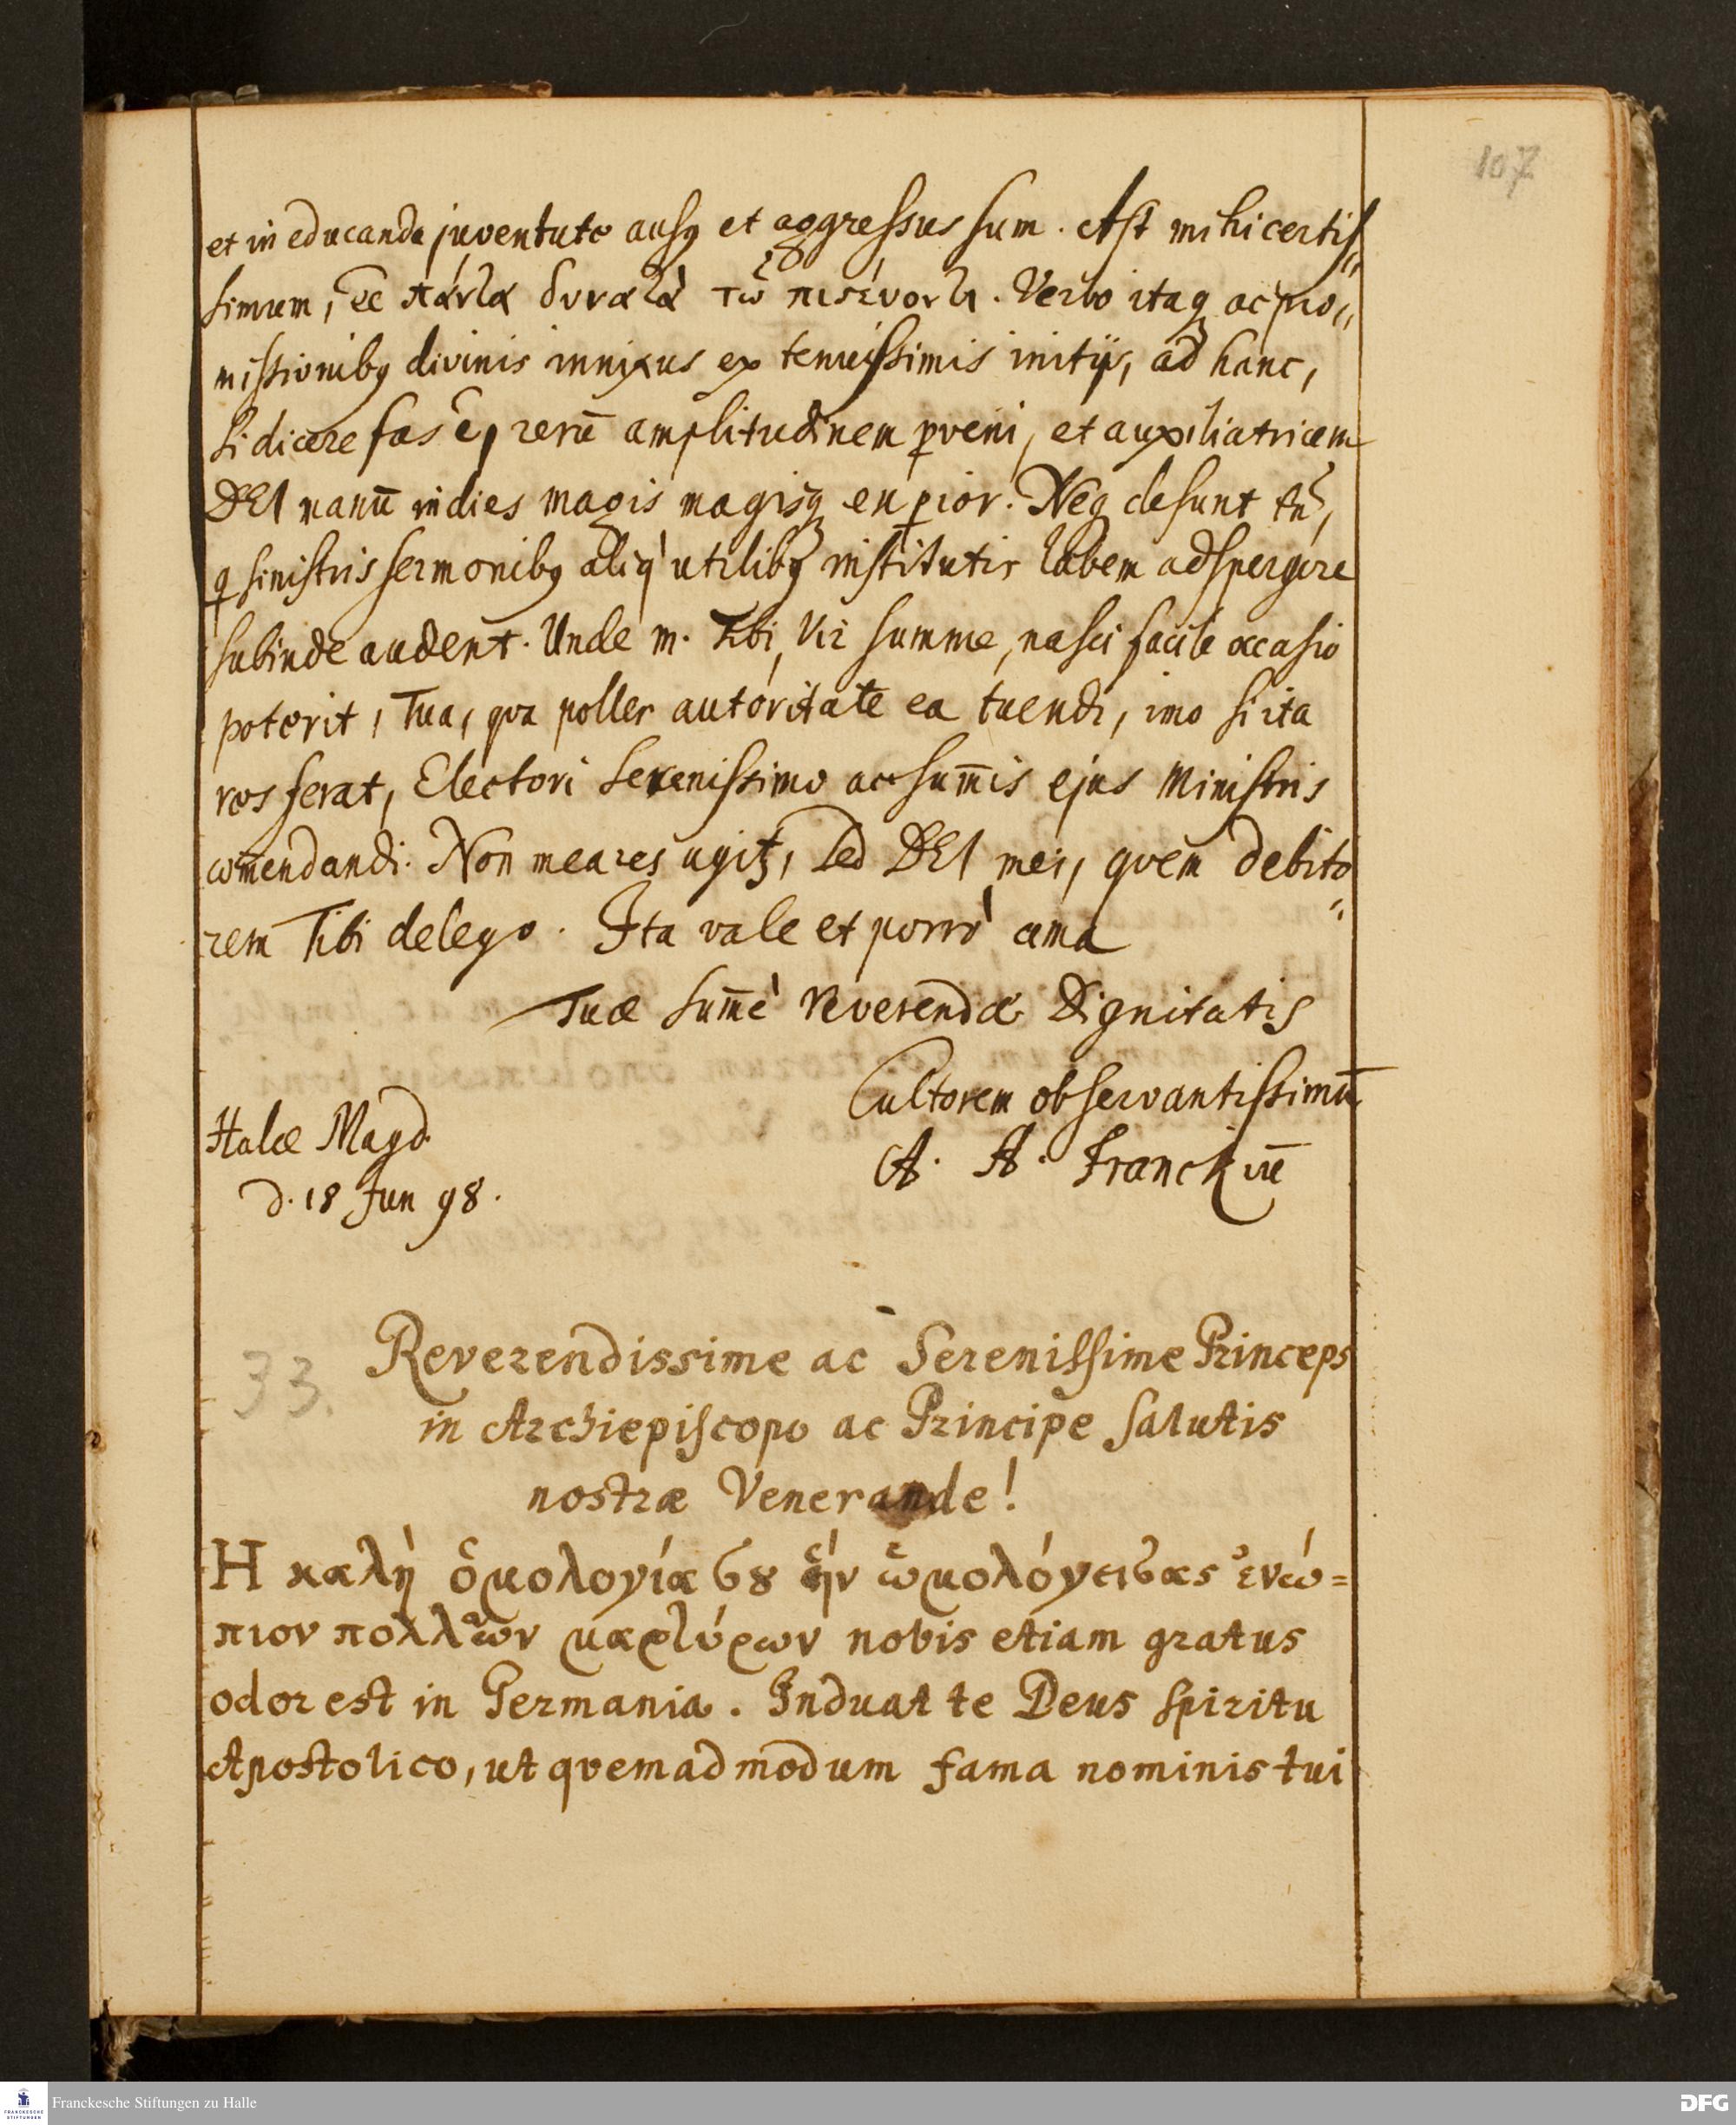 107
et in educanda juventute ausq et aggressus sum. Ast mihi certis⸗
simum, eē πάντα δυνατὰ τῷ πιστεύοντι. Verbo itaq ac pro⸗
missionibq divinis innixus ex tenuissimis initijs, ad hanc,
si dicere fas ē, rerū amplitudinem pveni, et auxiliatricem
DEI manū indies magis magisq expior. Neq desunt tn̄,
q sinistris sermonibq aliq utilibq institutis labem adspergere
subinde audent. Unde m. Tibi, Vir summe, nasci facile occasio
poterit, Tua, qva polles autoritate ea tuendi, imo si ita
res ferat, Electori Serenissimo ac sum̄is ejus Ministris
com̄endandi. Non mea res agitꝫ, sed DEI mei, qvem debito⸗
rem Tibi delego. Ita vale et porrò ama
Tuæ sum̄è Reverendæ Dignitatis
Cultorem observantissimū
A. H. Franckiū
Halæ Magd.
d. 18 Jun 98.
33. Reverendissime ac Serenissime Princeps
in Archiepiscopo ac Principe salutis
nostræ Venerande!
Η καλὴ ὁμολογία σȣ ἣν ὡμολόγησας ἐνώ=
πιον πολλῶν μαρτύρων nobis etiam gratus
odor est in Germania. Induat te Deus spiritu
Apostolico, ut qvemadmodum fama nominis tui
Franckesche Stiftungen zu Halle
DFG